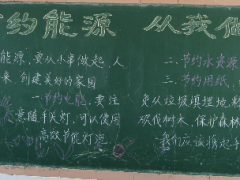 约能源 从我做
能源,要从小事做起,人
来 创建美好的家园
一、节约电能。要注
意随手关灯,可以使用
高效节能灯泡
二、节约水资源
三、节约用纸
砍伐树木,保护森林
我们应该携起手